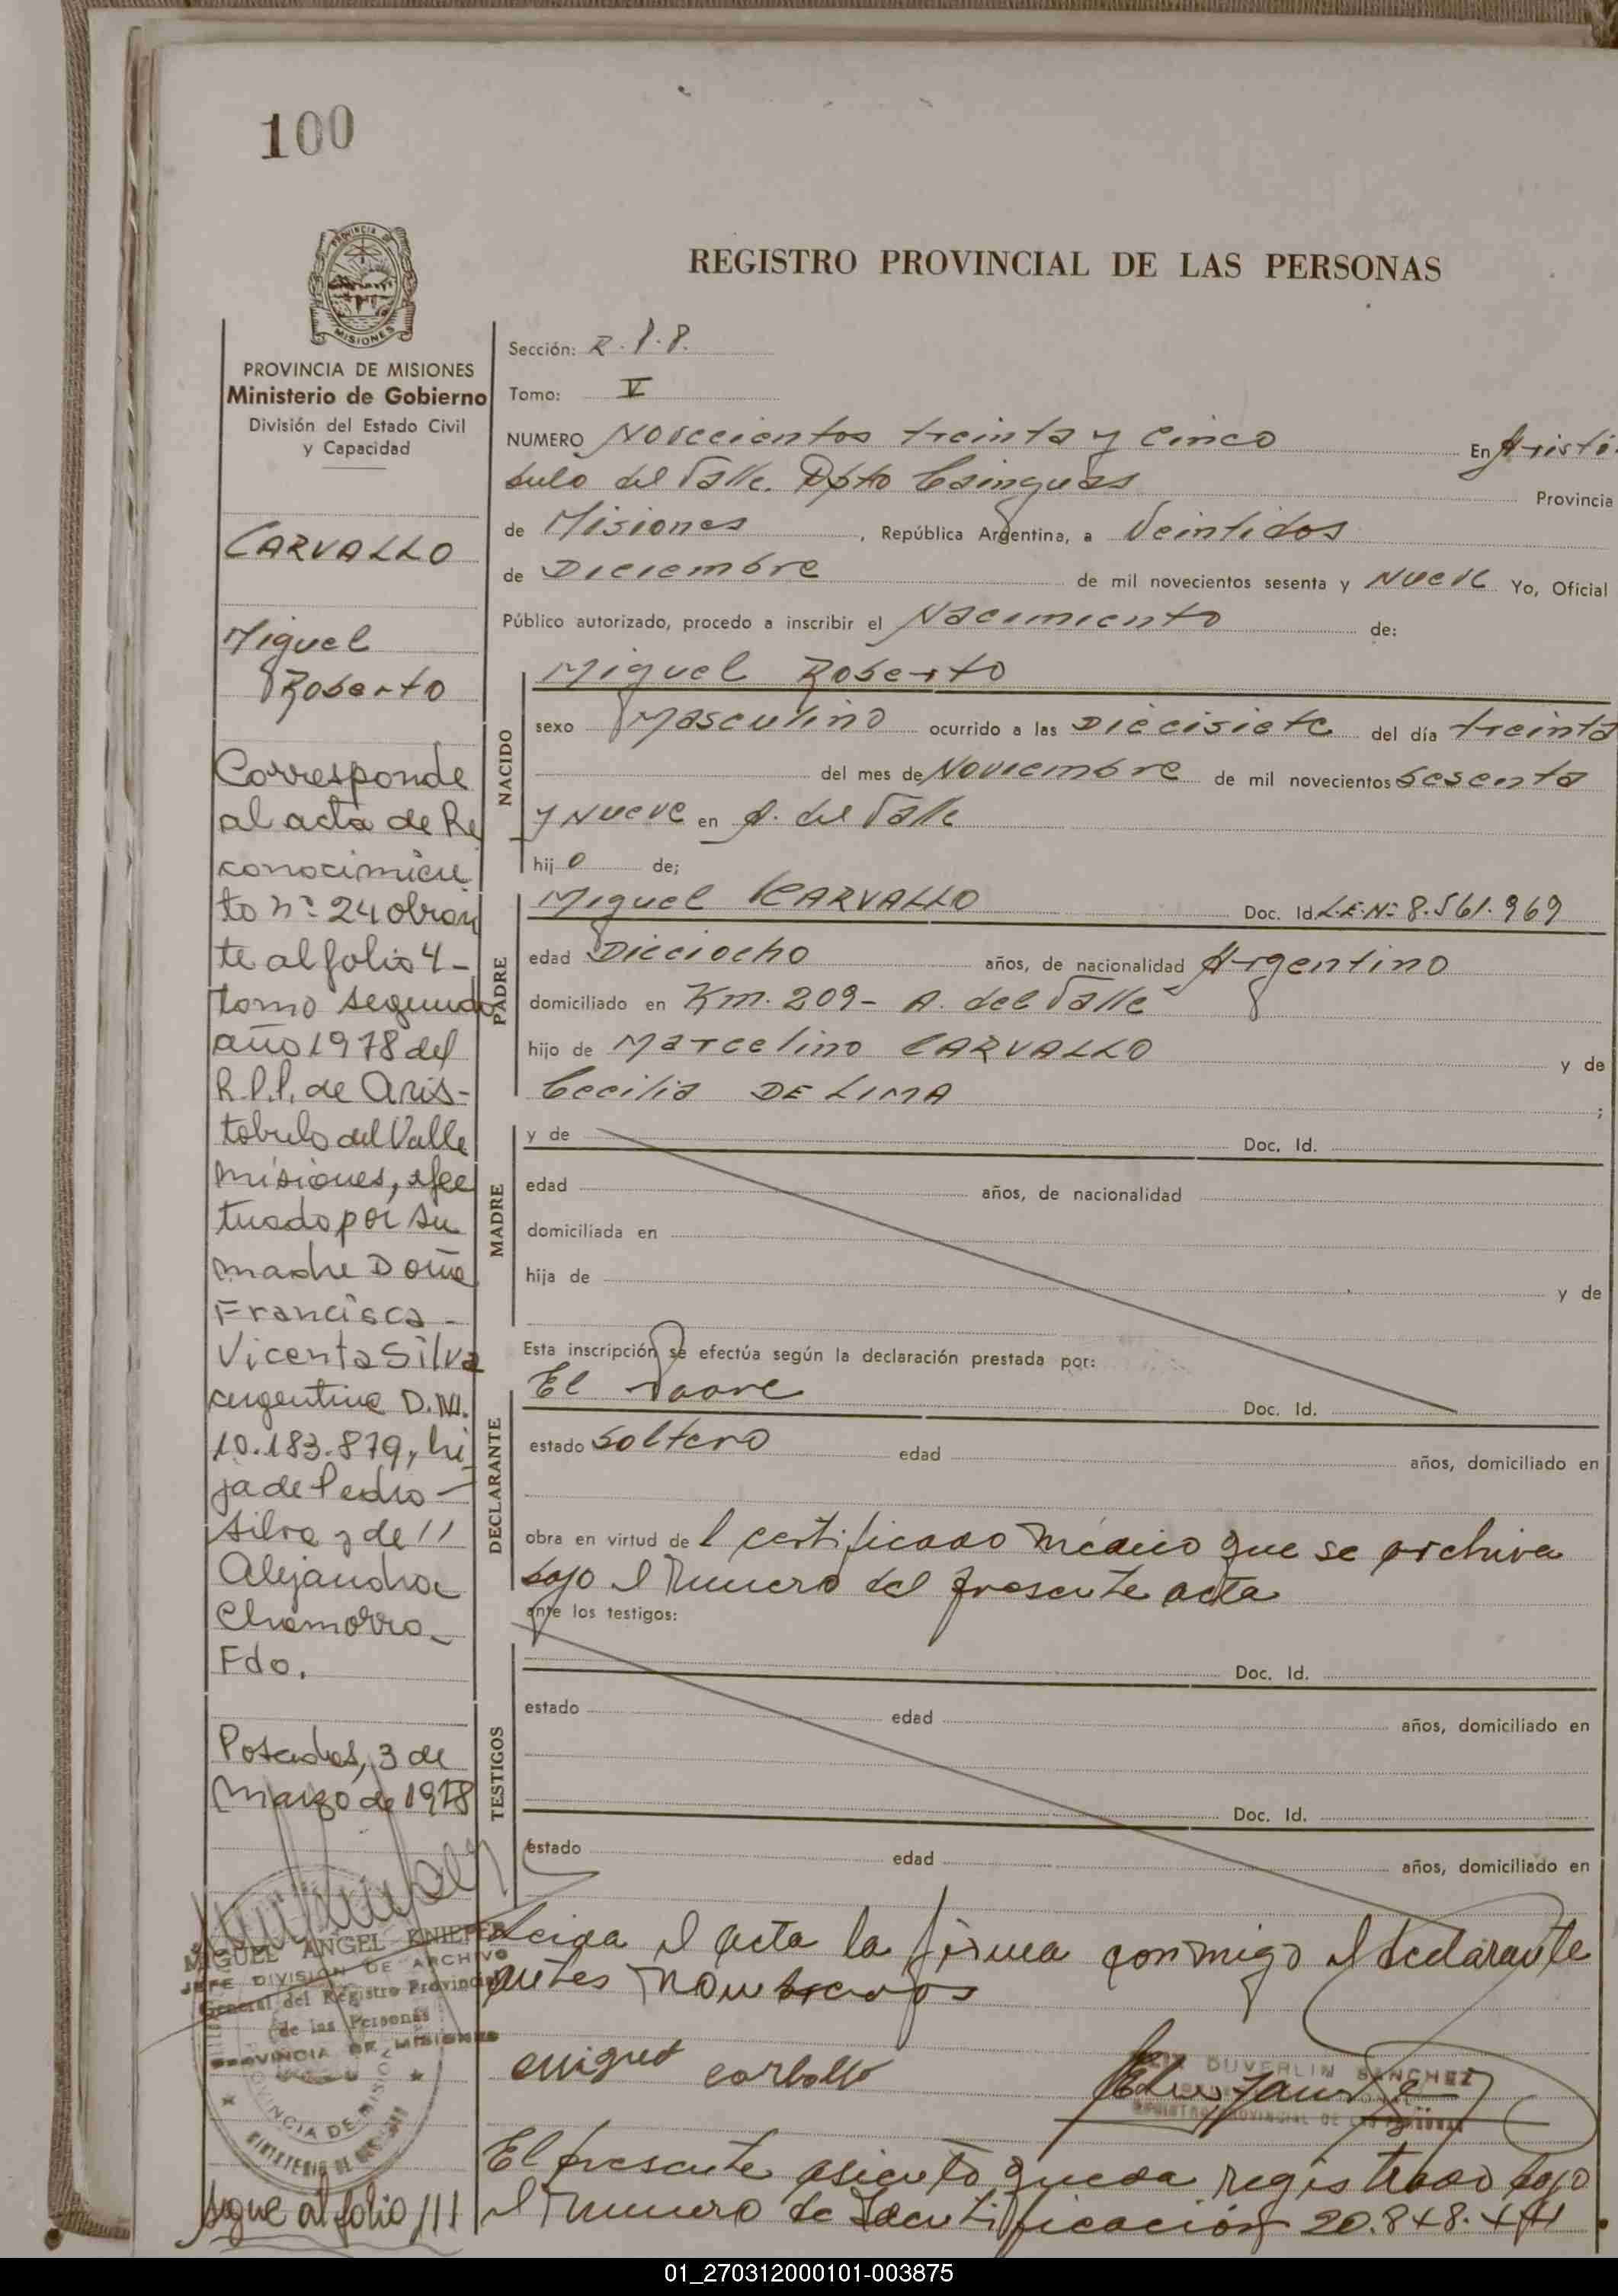 100
PROVINCIA DE
MISIONES
REGISTRO PROVINCIAL DE LAS PERSONAS
PROVINCIA DE MISIONES
Ministerio de Gobierno
División del Estado Civil
y Capacidad
CARVALLO
Miguel
Roberto
Corresponde
al acta de Re
conocimien
to nº 24 obran
te al folio 4-
tomo segundo
año 1978 del
R.P.P. de Aris-
tobulo del Valle
Misiones, efec
tuado por su
madre Doña
Francisca-
Vicenta Silva
argentina D.NI.
10.183.879, hi
ja de Pedro-
Silva y de //
Alejandra
Chamorro-
Fdo.
Posadas, 3 de
Marzo de 1978
MIGUEL ANGEL KNIEPER
JEFE DIVISION DE ARCHIVO
General del Registro Provincial
de las Personas
PROVINCIA DE MISIONES
PROVINCIA DE MISIONES
MINISTERIO DE
sigue al folio ///
Sección: R.P.P.
Tomo: V
NUMERO Novecientos treinta y Cinco En Aristó-
bulo del Valle. Dpto Cainguas Provincia
de Misiones, República Argentina, a Veintidos
de Diciembre de mil novecientos sesenta y Nueve Yo, Oficial
Público autorizado, procedo a inscribir el Nacimiento de:
NACIDO
Miguel Roberto
sexo Masculino ocurrido a las Diecisiete del día treinta
del mes de Noviembre de mil novecientos Sesenta
y Nueve en A. del Valle
hijo de;
PADRE
Miguel CARVALLO Doc. Id. L.E.Nº 8.561.969
edad Dieciocho años, de nacionalidad Argentino
domiciliado en Km. 209- A. del Valle
hijo de Marcelino CARVALLO y de
Cecilia DE LIMA ;
MADRE
y de Doc. Id.
edad años, de nacionalidad
domiciliada en
hija de y de
Esta inscripción se efectúa según la declaración prestada por:
DECLARANTE
El Padre Doc. Id.
estado Soltero edad años, domiciliado en
obra en virtud del certificado médico que se archiva
bajo el Numero del presente acta
ante los testigos:
TESTIGOS
Doc. Id.
estado edad años, domiciliado en
Doc. Id.
estado edad años, domiciliado en
Leida el acta la firma conmigo el declarante
antes nombrados
miguel carballo
DUVERLIN SANCHEZ
REGISTRO PROVINCIAL DE LAS PERSONAS
El presente asiento queda registrado bajo
el Numero de Identificación 20.848.
01_270312000101-003875